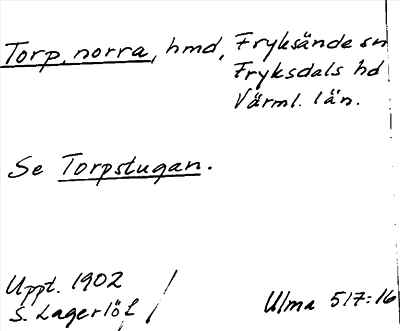 Torp, norra, hmd, Fryksände sn
Fryksdals hd
Värml. län.
Se Torpstugan.
Uppt. 1902
S. Lagerlöf
Ulma 517:16